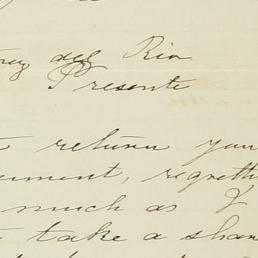 del Rio
Presente
return you
regretti
much as I
take a shar